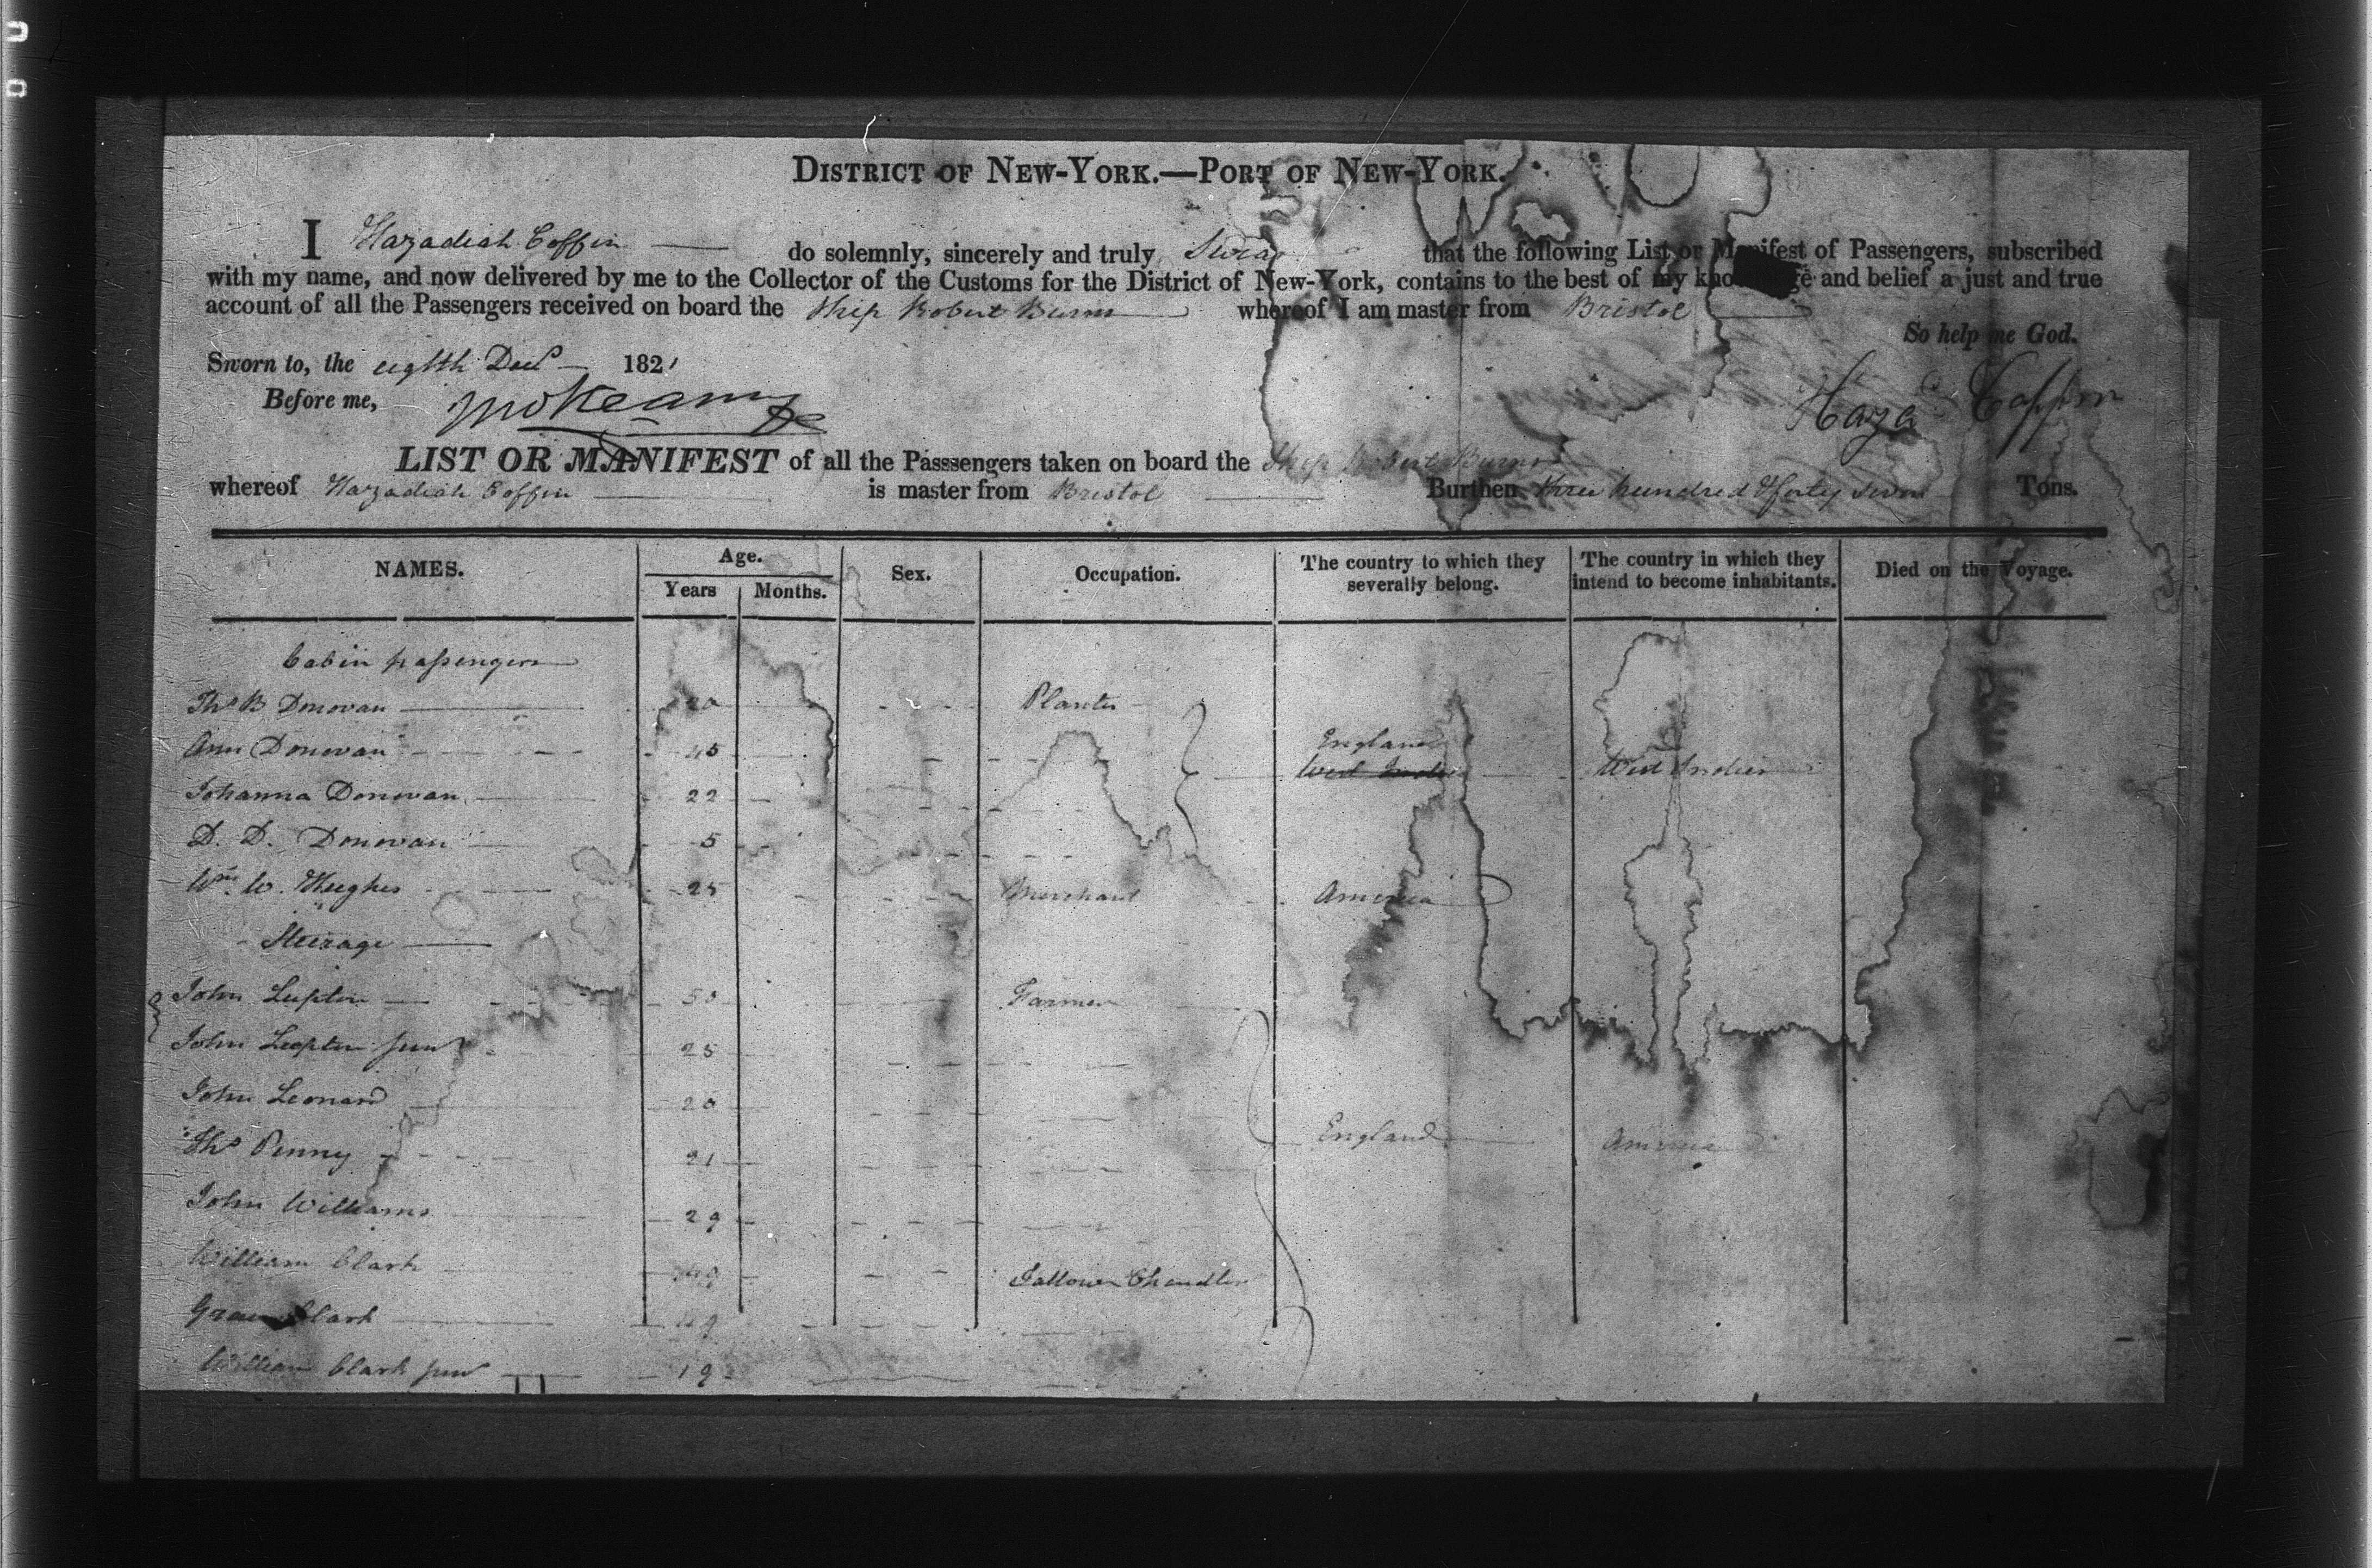 DISTRICT OF NEW-YORK.—PORT OF NEW-YORK.
I Hazadiah Coffin do solemnly, sincerely and truly Swear that the following List or Manifest of Passengers, subscribed
with my name, and now delivered by me to the Collector of the Customs for the District of New-York, contains to the best of my and belief a just and true
account of all the Passengers received on board the Ship Robert Burns whereof I am master from Bristol
So help me God.
Sworn to, the eighth Decr 1821
Before me,
Haza Coffin
LIST OR MANIFEST of all the Passsengers taken on board the Ship Robert Burns
whereof Hazadiah Coffin is master from Bristol Burthen three hundred & forty seven Tons.
NAMES. Age. Years Months. Sex. Occupation. The country to which they severally belong. The country in which they intend to become inhabitants. Died on the Voyage.
Cabin passengers
Thos B Donovan Planter
Ann Donovan 45 England
West Indies West Indies
Johanna Donovan 22
D. D. Donovan 5
Wm. W. Hughes 25 Merchant America
Steerage
John Lupton 50 Farmer
John Lupton junr 25
John Leonard 20
Thos Penny 21 England America
John Williams 29
William Clark 49 Tallow Chandler
Clark 49
William Clark junr 19